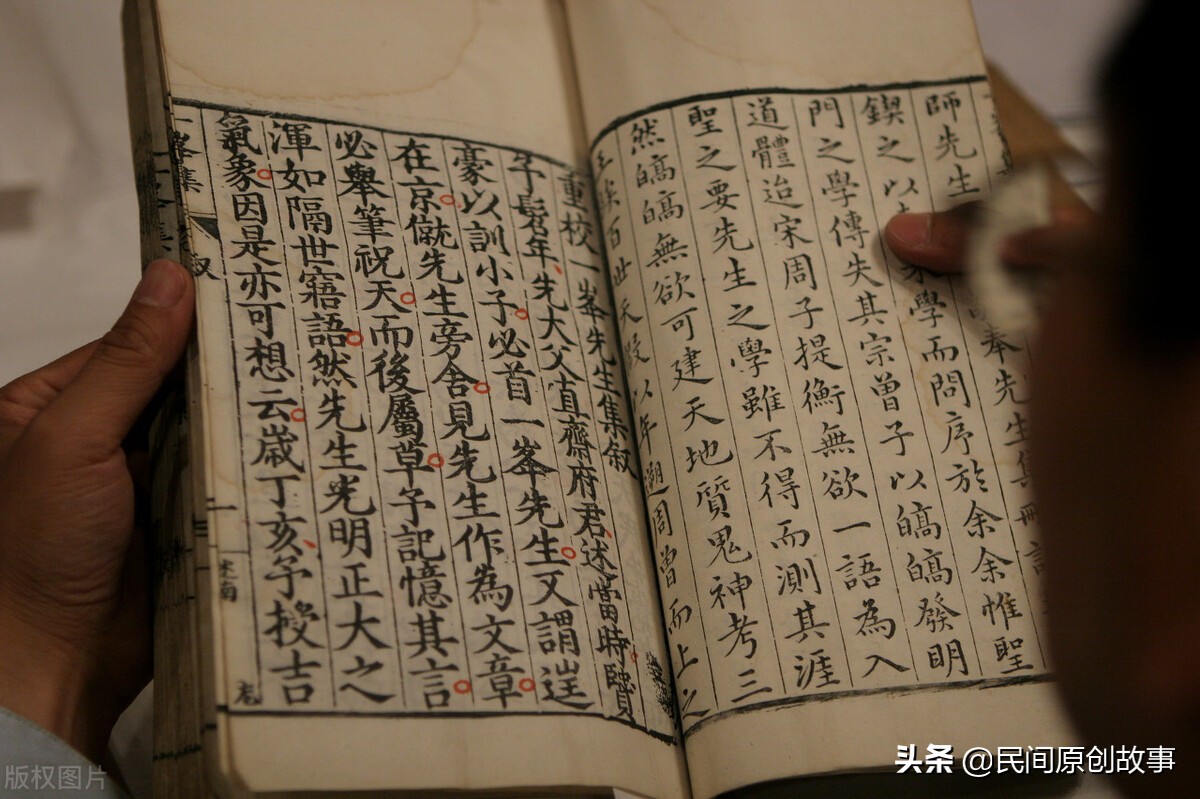 師先生
鍥之以
學而問序於余余惟聖
門之學傳失其宗曾子以皜皜發明
道體迨宋周子提衡無欲一語為入
聖之要先生之學雖不得而測其涯
然皜皜無欲可建天地質鬼神考三
百世天
以年遡周曾而上之
重校一峯先生集叙
予髫年先大父直齋府君述當時賢
豪以訓小子必首一峯先生又謂逞
在京僦先生旁舍見先生作為文章
必舉筆祝天而後屬草予記憶其言
渾如隔世寤語然先生光明正大之
氣象因是亦可想云歲丁亥予授吉
一峯集
叙
一
版权图片
头条 @民间原创故事